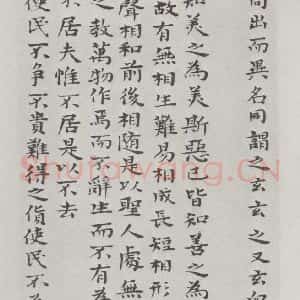 同出而異名同謂之玄玄之又玄
知美之為美斯惡已皆知善之為
故有無相生難易相成長短相形
聲相和前後相随是以聖人處無
之教萬物作焉而不辭生而不有為
不居夫惟不居是以不去
使民不争不貴難得之貨使民不為
Shufawang.CN